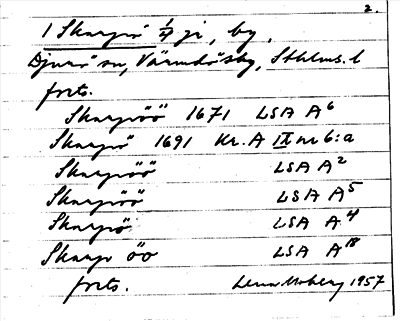 2.
1 Skarpö 1/4 ji, by,
Djurö sn, Värmdö sby, Sthlms. l
forts.
Skarpöö 1671 LSA A6
Skarpö 1691 Kr. A IX nr 6:a
Skarpöö LSA A2
Skarpöö LSA A5
Skarpö LSA A4
Skarp öö LSA A18
forts. Lena Moberg 1957